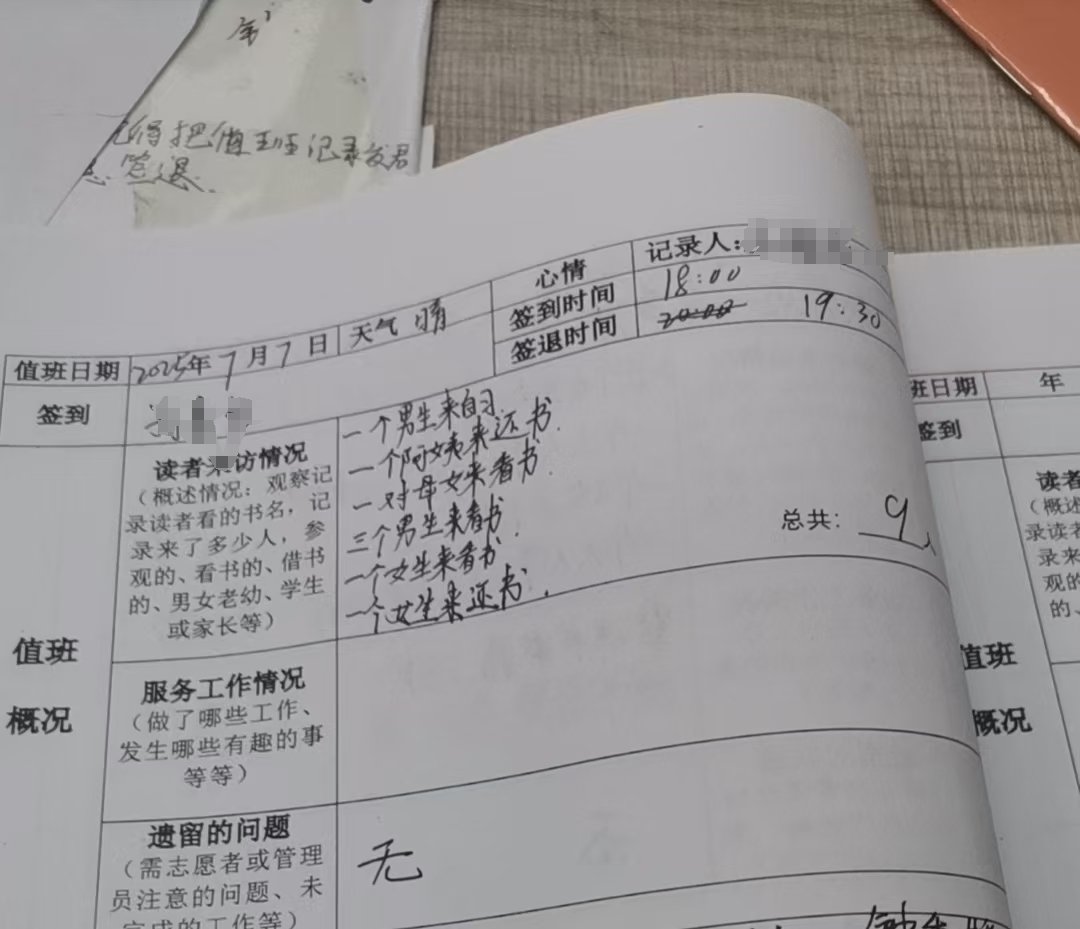 得把值班记录交君
签退.
心情
记录人:
签到时间 18:00
签退时间 20:00 19:30
值班日期 2025年 7 月 7 日 天气 晴
签到
值班
概况
读者来访情况
(概述情况:观察记
录读者看的书名,记
录来了多少人,参
观的、看书的、借书
的、男女老幼、学生
或家长等)
一个男生来自习
一个阿姨来还书.
一对母女来看书.
三个男生来看书.
一个女生来看书
一个女生来还书.
总共: 9人
服务工作情况
(做了哪些工作、
发生哪些有趣的事
等等)
遗留的问题
(需志愿者或管理
员注意的问题、未
完成的工作等)
无
班日期 年
签到
读者
(概述
录读者
录来
观的
的、
值班
概况